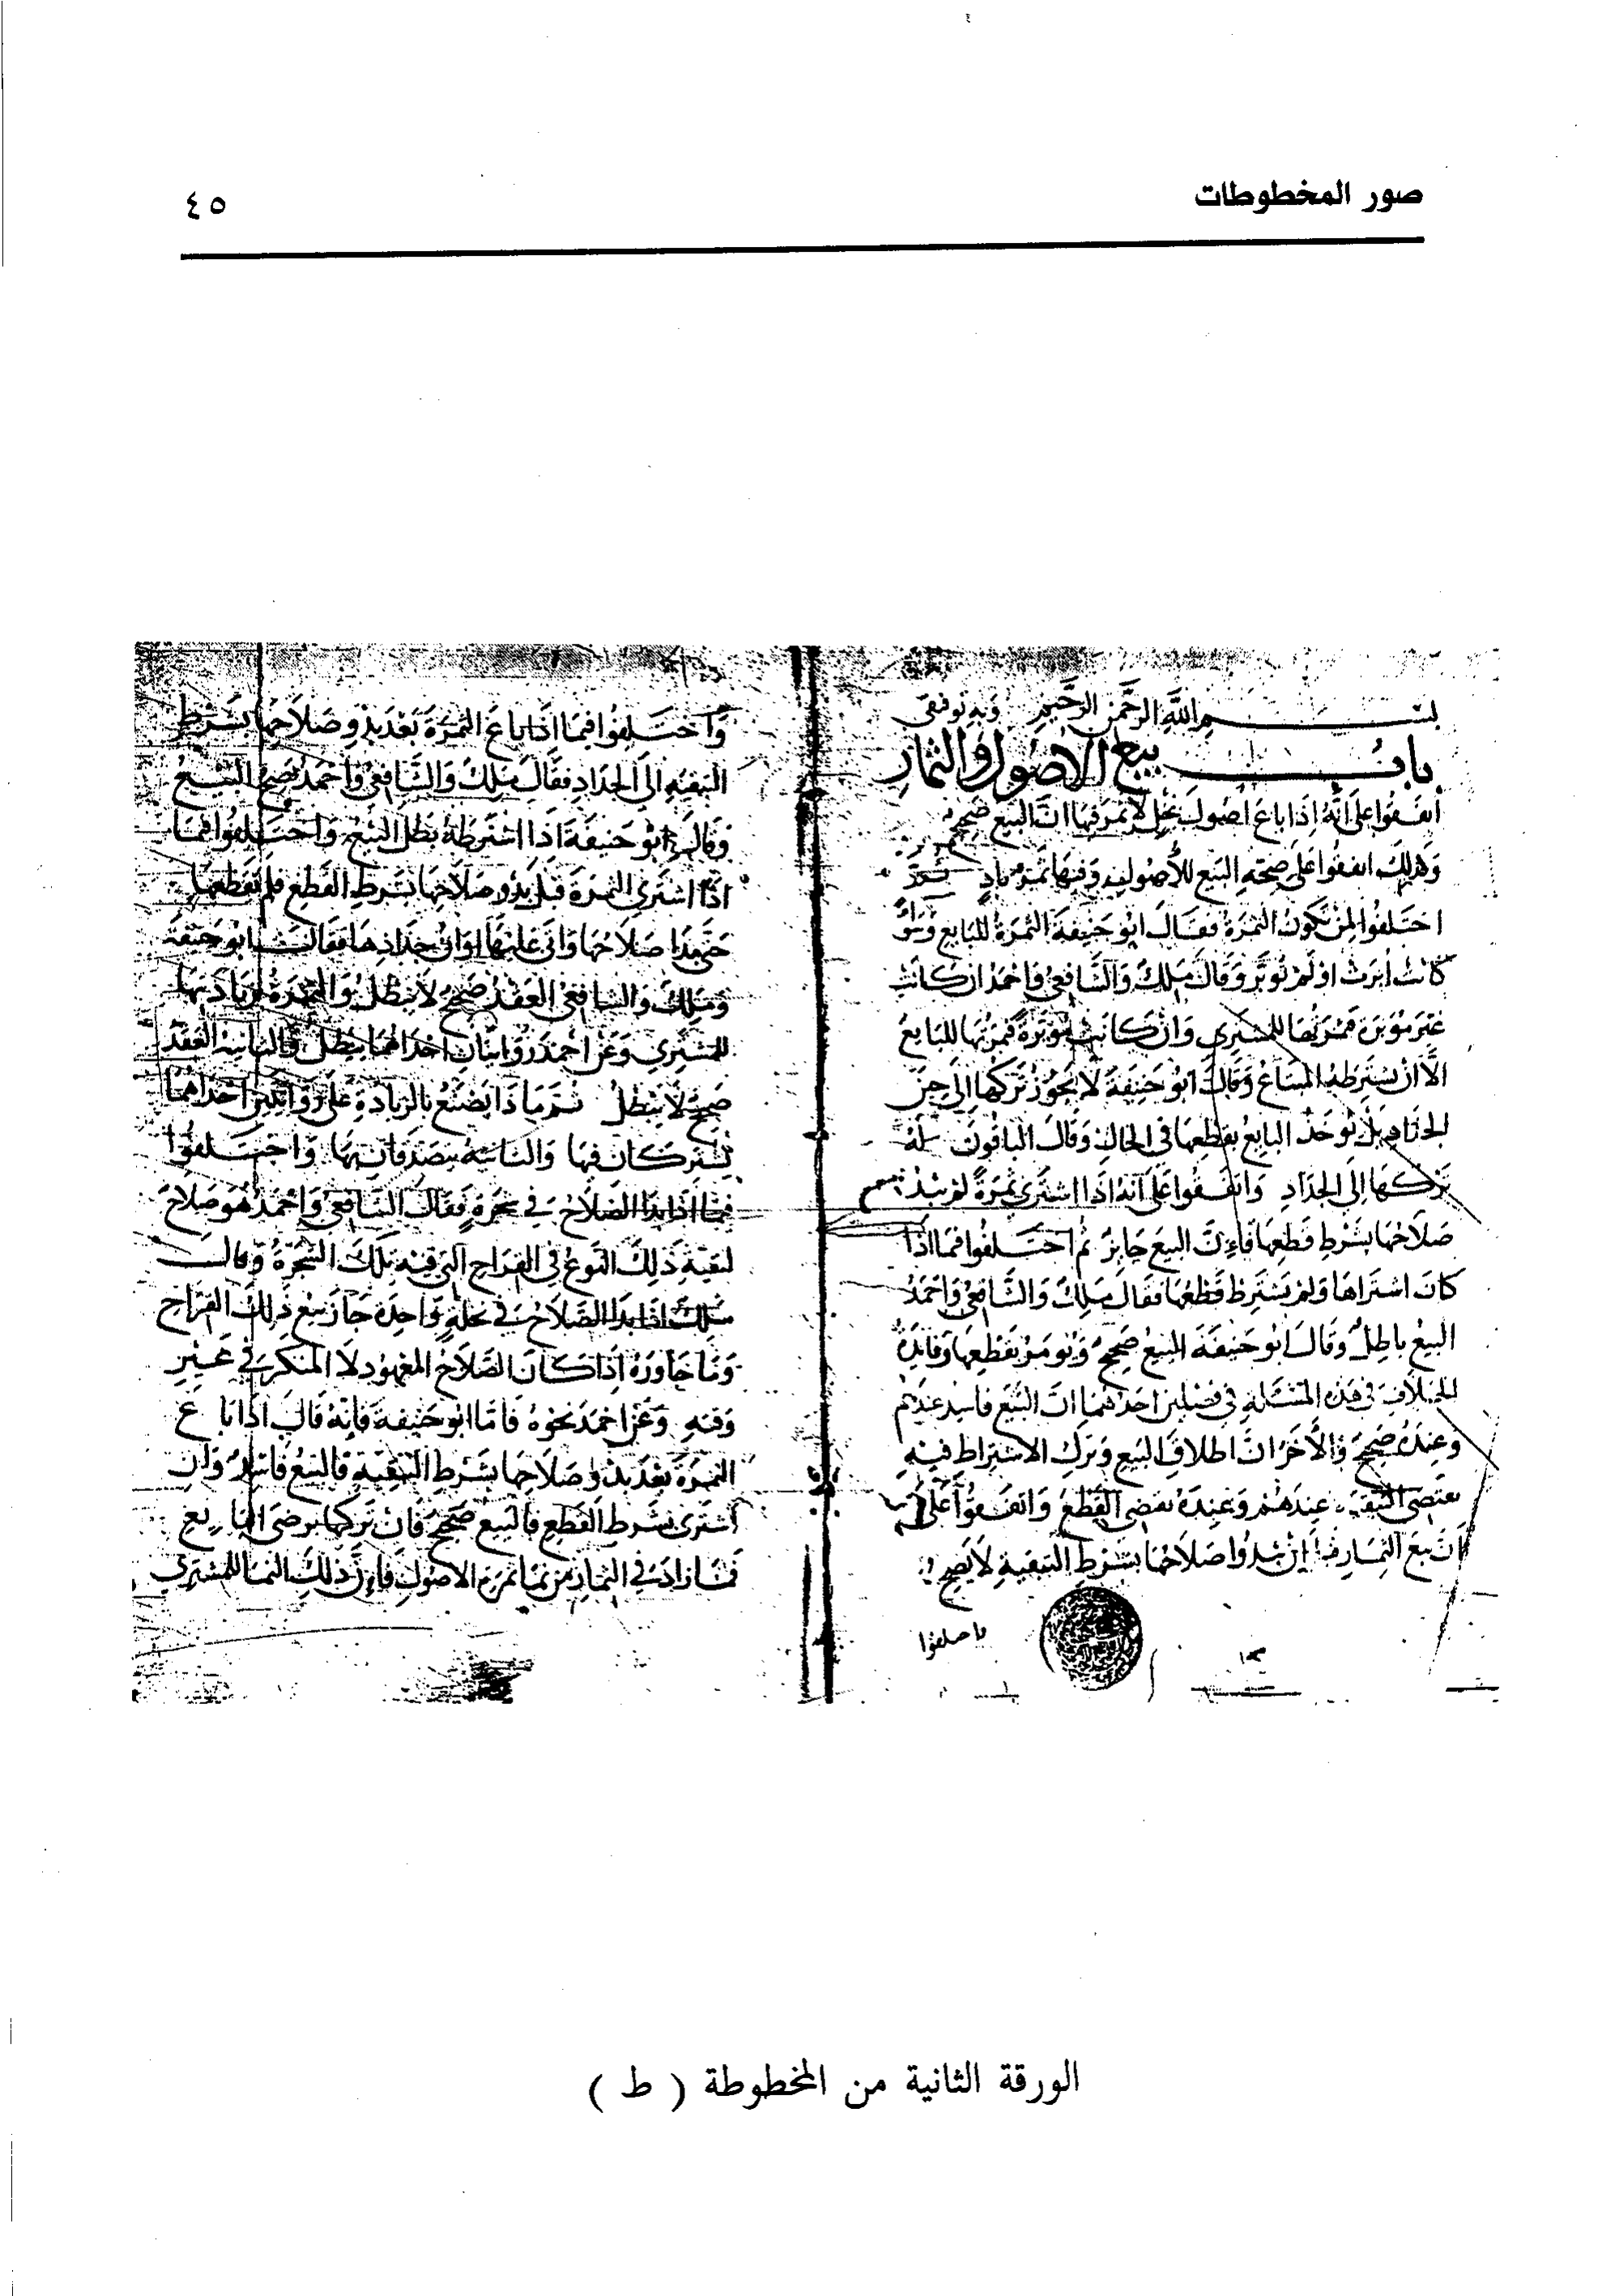 صور المخطوطات
٤٥
بسم الله الرحمن الرحيم وبه توفيقي
باب بيع الاصول والثمار
اتفقوا على انه اذا باع اصول نخل لا ثمر فيها ان البيع صحيح
وكذلك اتفقوا على صحة البيع للأصول وفيها ثمر باد ثم
اختلفوا لمن تكون الثمرة فقال ابو حنيفة الثمرة للبايع وسوآ
كانت أبرت او لم توبر وقال ملك والشافعي واحمد ان كانت
غير موبرة فثمرتها للمشتري وان كانت موبرة فثمرتها للبايع
الا ان يشترطه المبتاع وقال ابو حنيفة لا يجوز تركها الى حين
الجذاذ بل يوخذ البايع بقطعها في الحال وقال الباقون له
تركها الى الجذاذ واتفقوا على انه اذا اشترى ثمرة لم يبد
صلاحها بشرط قطعها فإن البيع جايز ثم اختلفوا فيما اذا
كان اشتراها ولم يشترط قطعها فقال ملك والشافعي واحمد
البيع باطل وقال ابو حنيفة البيع صحيح ويومر بقطعها وفايدة
الخلاف في هذه المسئلة في فصلين احدهما ان البيع فاسد عندهم
وعنده صحيح والآخر ان اطلاق البيع وترك الاشتراط فيه
يقتضي التبقية عندهم وعنده يقتضي القطع واتفقوا على
ان بيع الثمار قبل ان يبدوا صلاحها بشرط التبقية لا يصح
واختلفوا
واختلفوا فيما اذا باع الثمرة بعد بدو صلاحها بشرط
التبقية الى الجذاذ فقال ملك والشافعي واحمد يصح البيع
وقال ابو حنيفة اذا اشترطه بطل البيع واختلفوا فيما
اذا اشترى الثمرة قبل بدو صلاحها بشرط القطع فلم يقطعها
حتى بدا صلاحها واتى عليها اوان جذاذها فقال ابو حنيفة
وملك والشافعي العقد صحيح لا يبطل والثمرة بزيادتها
للمشتري وعن احمد روايتان احداهما يبطل والثانية العقد
صحيح لا يبطل ثم ماذا يصنع بالزيادة على روايتين احداهما
يشتركان فيها والثانية يتصدقان بها واختلفوا
فيما اذا بدا الصلاح في شجرة فقال الشافعي واحمد هو صلاح
لبقية ذلك النوع في القراح الذي فيه تلك الشجرة وقال
ملك اذا بدا الصلاح في نخلة واحدة جاز بيع ذلك القراح
وما جاوره اذا كان الصلاح المعهود لا المنكر في غير
وقته وعن احمد نحوه فاما ابو حنيفة فإنه قال اذا باع
الثمرة بعد بدو صلاحها بشرط التبقية فالبيع فاسد وان
اشترى بشرط القطع فالبيع صحيح فان تركها برضى البايع
فما زاد في الثمار من نما ثمرة الاصول فإن ذلك النما للمشتري
الورقة الثانية من المخطوطة ( ط )